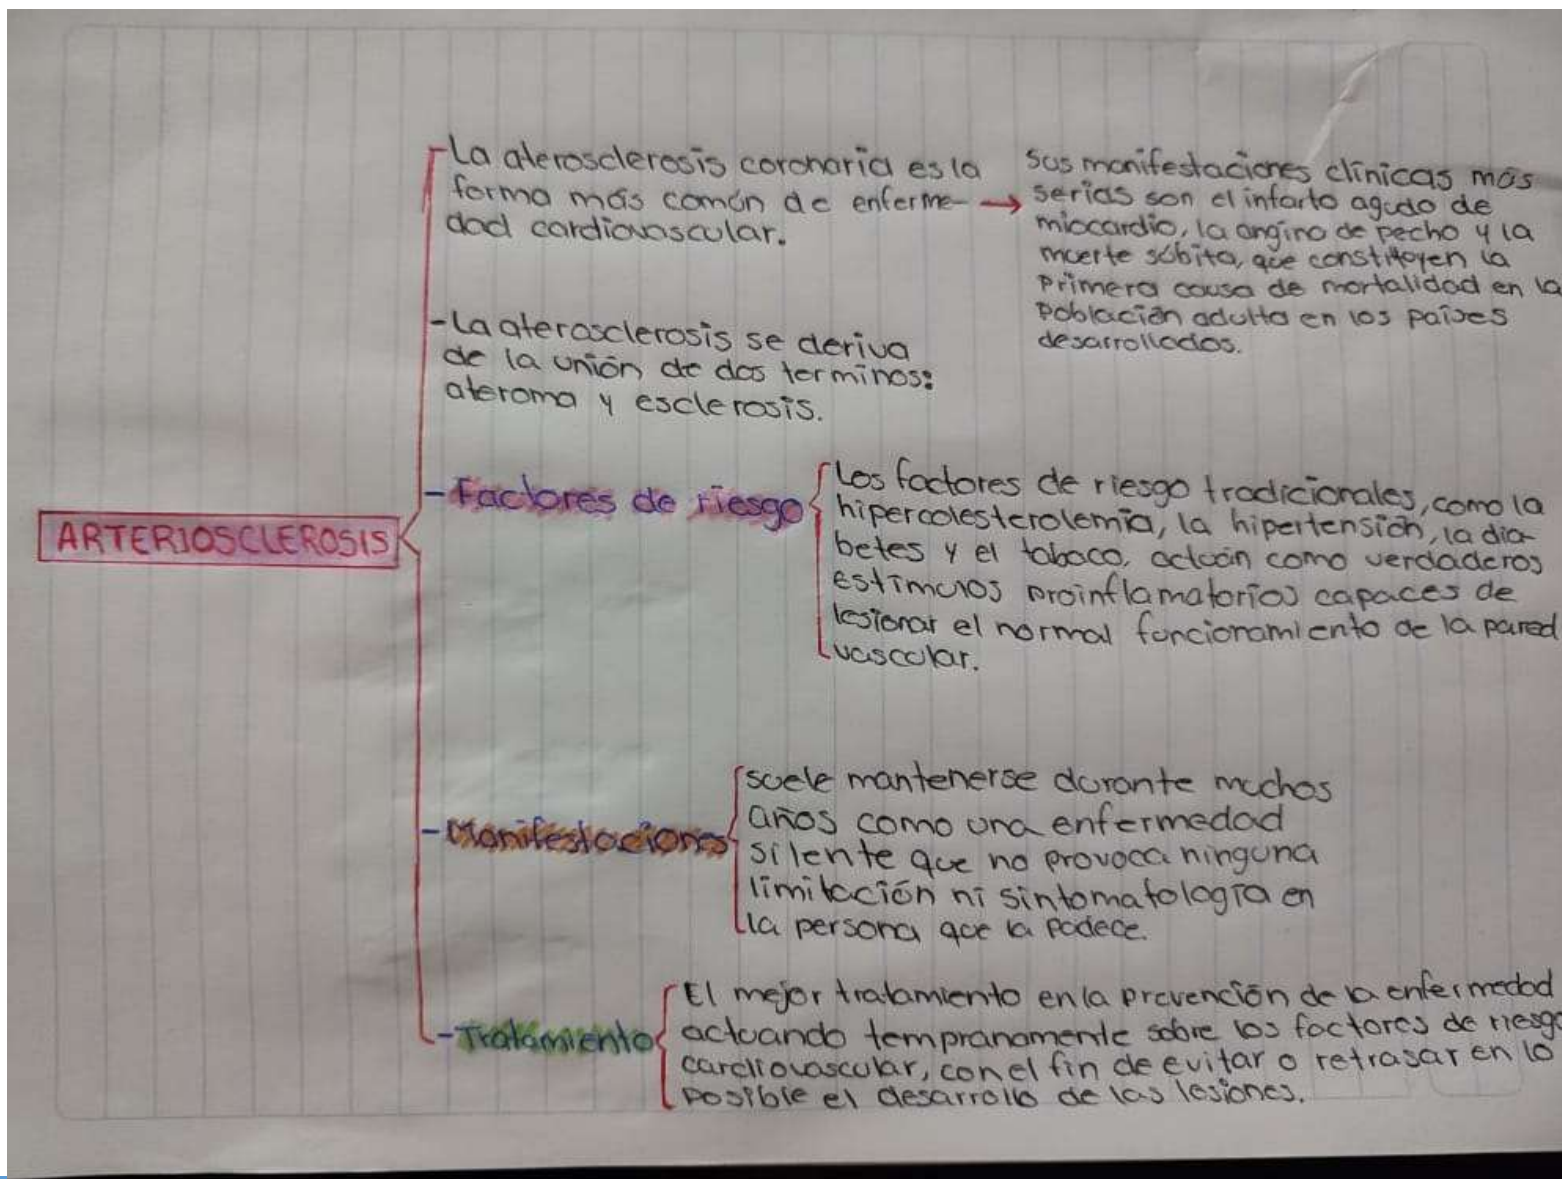 ARTERIOSCLEROSIS
-La aterosclerosis coronaria es la
forma más común de enferme-
dad cardiovascular.
→ Sus manifestaciones clínicas más
serias son el infarto agudo de
miocardio, la angina de pecho y la
muerte súbita, que constituyen la
primera causa de mortalidad en la
población adulta en los países
desarrollados.
-La aterosclerosis se deriva
de la unión de dos terminos:
ateroma y esclerosis.
-Factores de riesgo
Los factores de riesgo tradicionales, como la
hipercolesterolemia, la hipertensión, la dia-
betes y el tabaco, actúan como verdaderos
estímulos proinflamatorios capaces de
lesionar el normal funcionamiento de la pared
vascular.
-Manifestaciones
suele mantenerse durante muchos
años como una enfermedad
silente que no provoca ninguna
limitación ni sintomatología en
la persona que la padece.
-Tratamiento
El mejor tratamiento en la prevención de la enfermedad
actuando tempranamente sobre los factores de riesgo
cardiovascular, con el fin de evitar o retrasar en lo
posible el desarrollo de las lesiones.